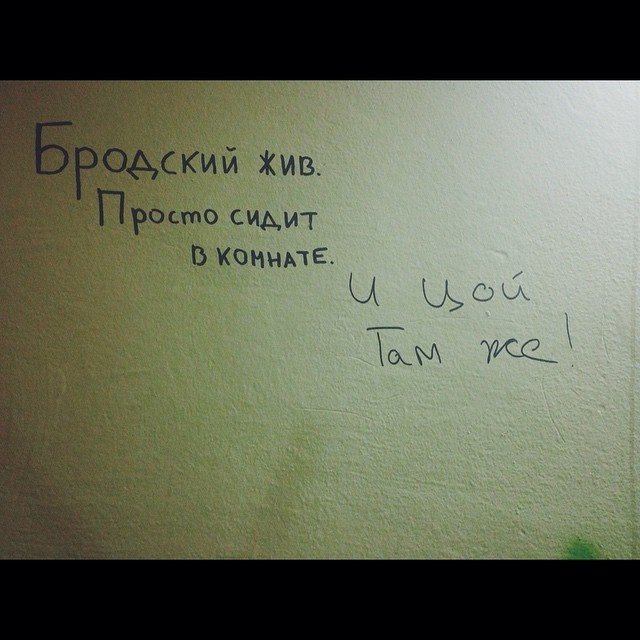 Бродский жив.
Просто сидит
в комнате.
И Цой
Там же!